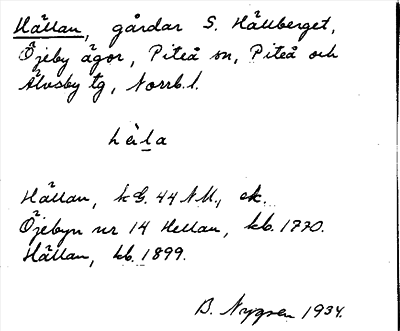 Hällan, gårdar S. Hällberget,
Öjeby ägor, Piteå sn, Piteå och
Älvsby tg, Norrb. l.
Hällan, kG. 44 NM., ek.
Öjebyn nr 14 Hellan, kb. 1770.
Hällan, kb. 1899.
B. Nygren 1934.